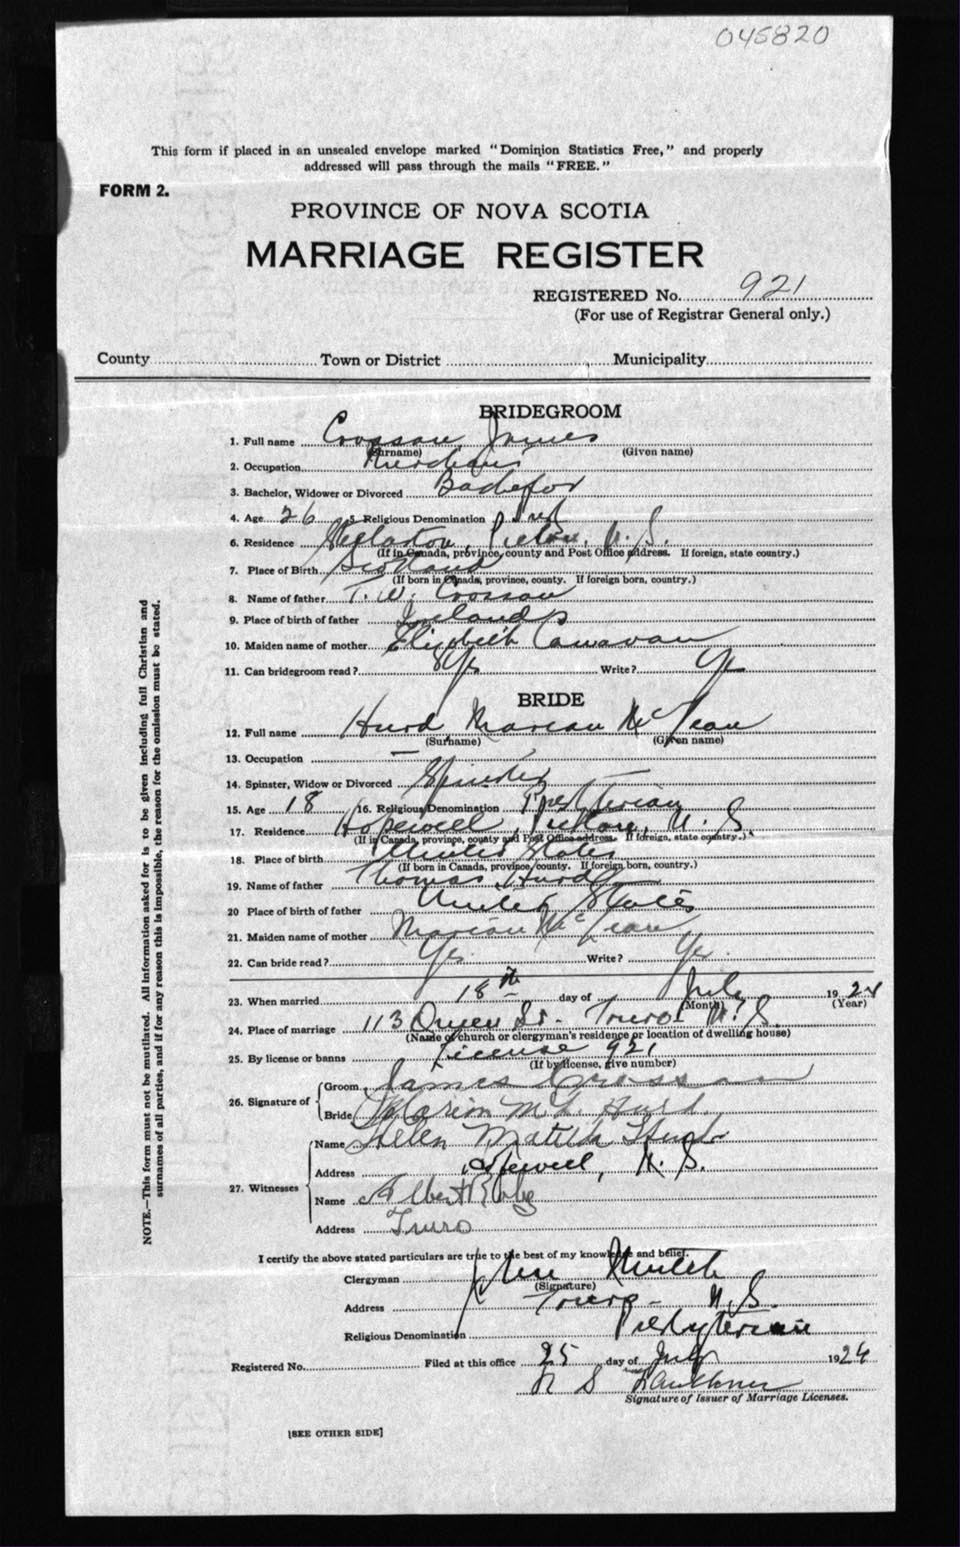 045820
This form if placed in an unsealed envelope marked "Dominion Statistics Free," and properly
addressed will pass through the mails "FREE."
FORM 2.
PROVINCE OF NOVA SCOTIA
MARRIAGE REGISTER
REGISTERED No. 921
(For use of Registrar General only.)
County Town or District Municipality
BRIDEGROOM
1. Full name Crossan, James
(Surname) (Given name)
2. Occupation Merchant
3. Bachelor, Widower or Divorced Bachelor
4. Age 26 5. Religious Denomination
6. Residence Stellarton, Pictou, N. S.
(If in Canada, province, county and Post Office address. If foreign, state country.)
7. Place of Birth Scotland
(If born in Canada, province, county. If foreign born, country.)
8. Name of father T. W. Crossan
9. Place of birth of father Ireland
10. Maiden name of mother Elizabeth Canavan
11. Can bridegroom read? Yes Write? Yes
BRIDE
12. Full name Hurd Marian McLean
(Surname) (Given name)
13. Occupation —
14. Spinster, Widow or Divorced Spinster
15. Age 18 16. Religious Denomination Presbyterian
17. Residence Hopewell, Pictou, N. S.
(If in Canada, province, county and Post Office address. If foreign, state country.)
18. Place of birth United States
(If born in Canada, province, county. If foreign born, country.)
19. Name of father Thomas Hurd
20 Place of birth of father United States
21. Maiden name of mother Marian McLean
22. Can bride read? Yes Write? Yes
23. When married 18th day of July 1924
(Month) (Year)
24. Place of marriage 113 Queen St. Truro N. S.
(Name of church or clergyman's residence or location of dwelling house)
25. By license or banns License 921
(If by license, give number)
26. Signature of Groom James Crossan
Bride Marion McL. Hurd.
27. Witnesses Name Helen Matilda Hurd
Address Hopewell, N. S.
Name Albert
Address Truro
I certify the above stated particulars are true to the best of my knowledge and belief.
Clergyman
(Signature)
Address Truro - N. S.
Religious Denomination Presbyterian
Registered No. Filed at this office 25 day of July 1924
Signature of Issuer of Marriage Licenses.
[SEE OTHER SIDE]
NOTE.—This form must not be mutilated. All information asked for is to be given including full Christian and
surnames of all parties, and if for any reason this is impossible, the reason for the omission must be stated.